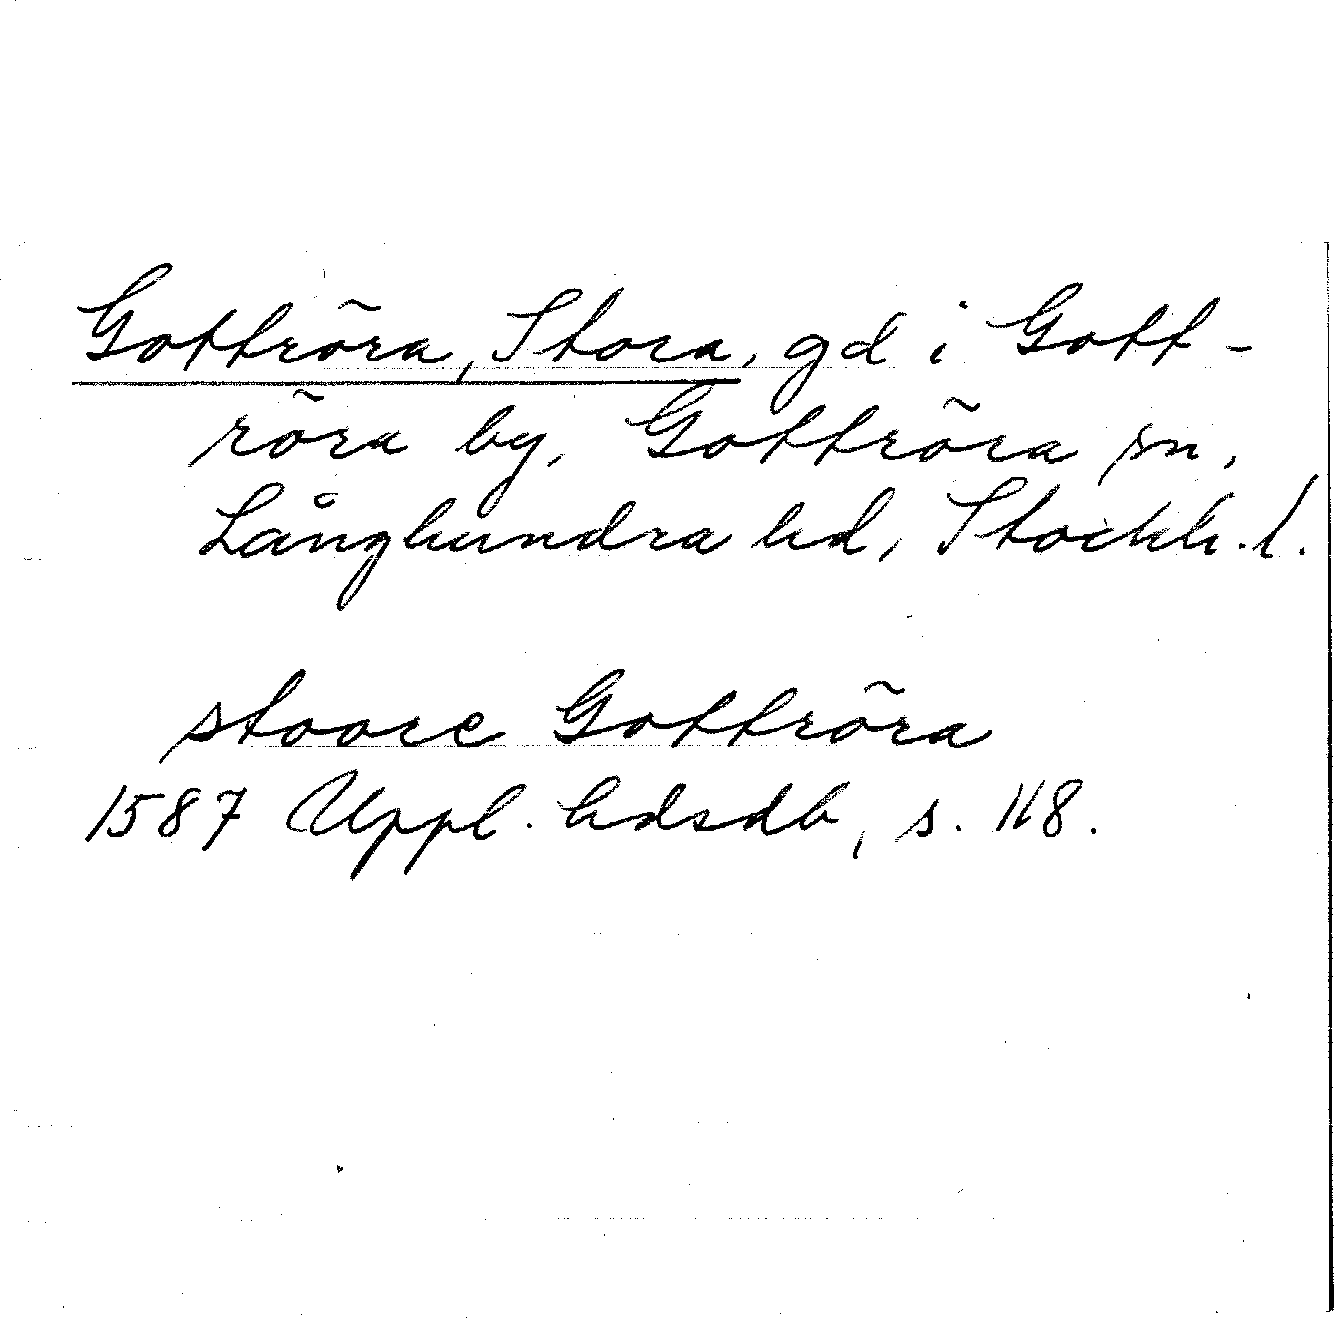 Gottröra, Stora, gd i Gott-
röra by, Gottröra sn,
Långhundra hd, Stockh. l.
stoore Gottröra
1587 Uppl. hdsdb, s. 118.